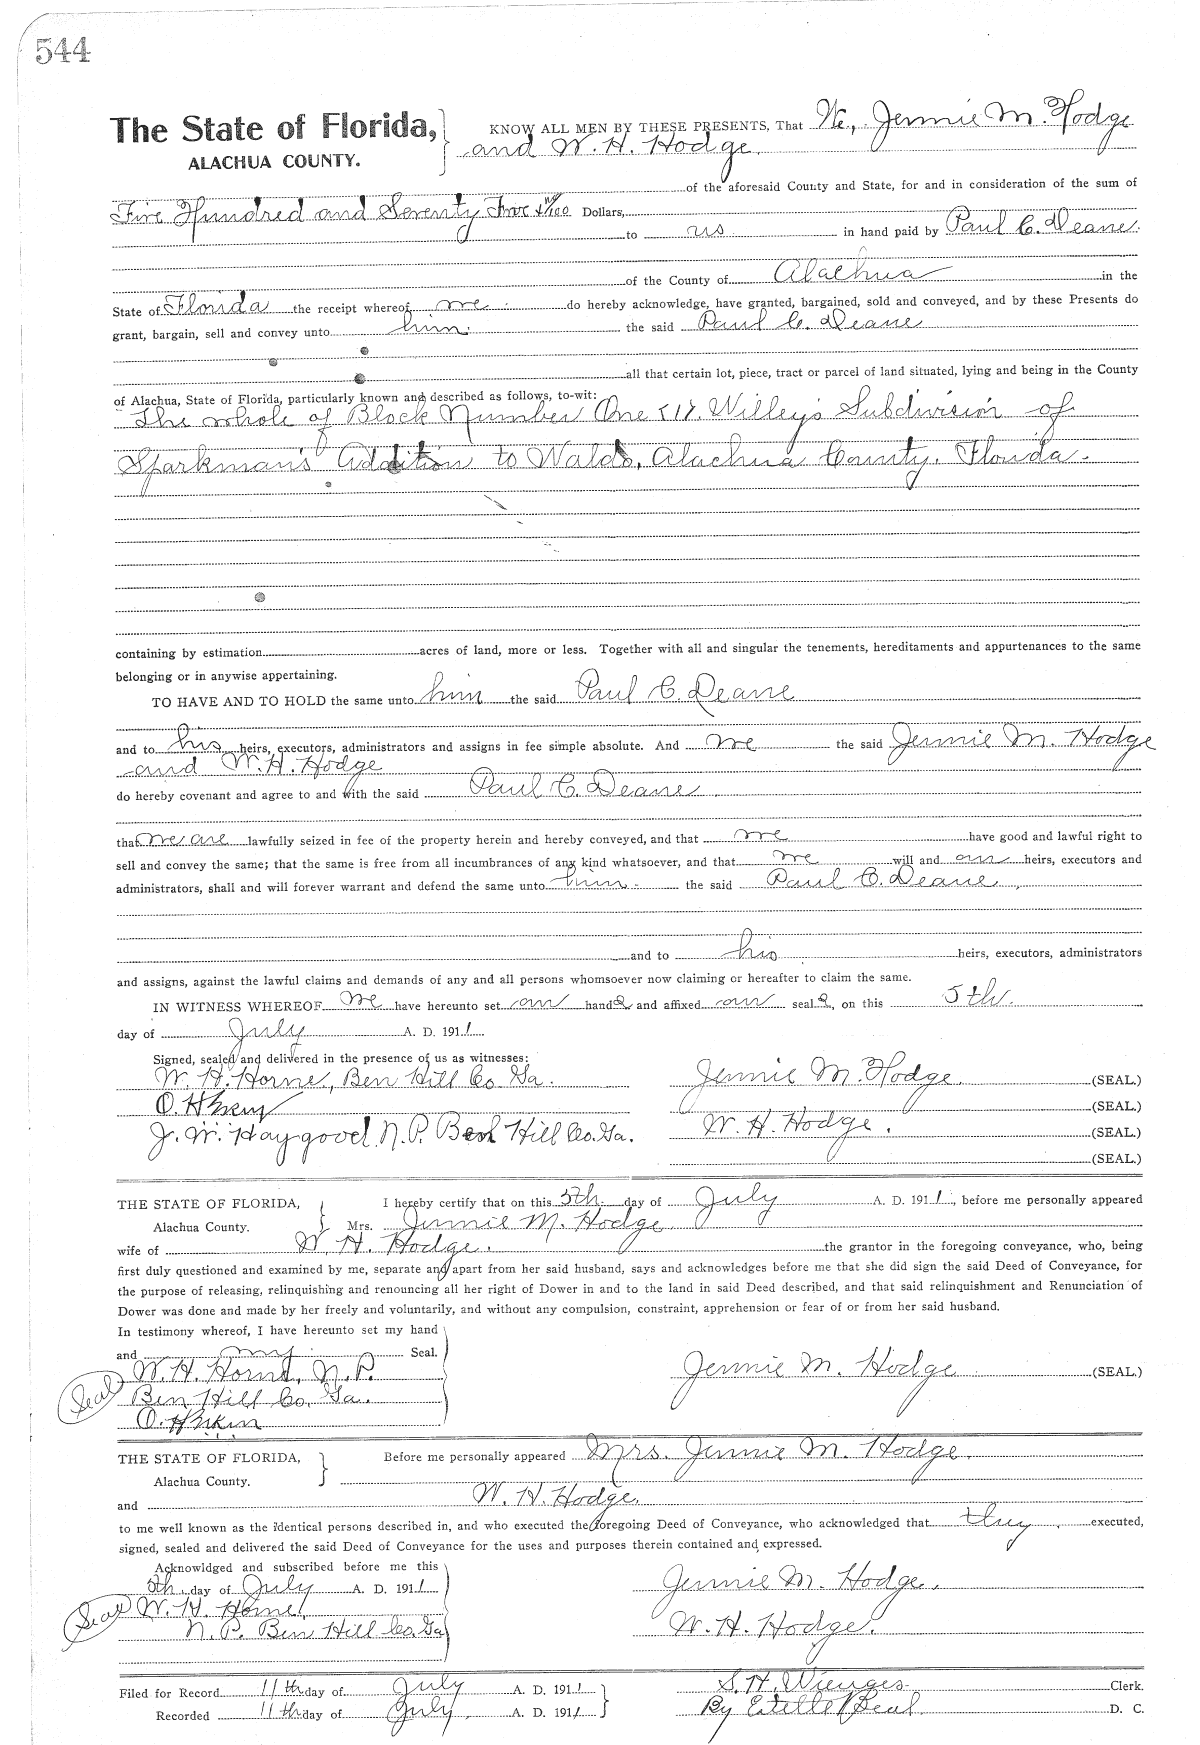 544
The State of Florida, KNOW ALL MEN BY THESE PRESENTS, That We, Jennie M. Hodge
ALACHUA COUNTY. and W. H. Hodge
of the aforesaid County and State, for and in consideration of the sum of
Five Hundred and Seventy Five & no/100 Dollars,
to us in hand paid by Paul C. Deane.
of the County of Alachua in the
State of Florida the receipt whereof we do hereby acknowledge, have granted, bargained, sold and conveyed, and by these Presents do
grant, bargain, sell and convey unto him. the said Paul C. Deane
all that certain lot, piece, tract or parcel of land situated, lying and being in the County
of Alachua, State of Florida, particularly known and described as follows, to-wit:
The whole of Block Number One (1). Willey's Subdivision of
Sparkman's Addition to Waldo, Alachua County. Florida.
containing by estimation acres of land, more or less. Together with all and singular the tenements, hereditaments and appurtenances to the same
belonging or in anywise appertaining.
TO HAVE AND TO HOLD the same unto him the said Paul C. Deane
and to his heirs, executors, administrators and assigns in fee simple absolute. And we the said Jennie M. Hodge
and W. H. Hodge
do hereby covenant and agree to and with the said Paul C. Deane.
that we are lawfully seized in fee of the property herein and hereby conveyed, and that we have good and lawful right to
sell and convey the same; that the same is free from all incumbrances of any kind whatsoever, and that we will and our heirs, executors and
administrators, shall and will forever warrant and defend the same unto him the said Paul C. Deane,
and to his heirs, executors, administrators
and assigns, against the lawful claims and demands of any and all persons whomsoever now claiming or hereafter to claim the same.
IN WITNESS WHEREOF We have hereunto set our hands and affixed our seals, on this 5th.
day of July A. D. 1911
Signed, sealed and delivered in the presence of us as witnesses:
W. H. Horne, Ben Hill Co. Ga. Jennie M. Hodge. (SEAL.)
O. H. (SEAL.)
J. W. Haygood N. P. Ben Hill Co. Ga. W. H. Hodge. (SEAL.)
(SEAL.)
THE STATE OF FLORIDA, I hereby certify that on this 5th. day of July A. D. 1911., before me personally appeared
Alachua County. Mrs. Jennie M. Hodge
wife of W. H. Hodge. the grantor in the foregoing conveyance, who, being
first duly questioned and examined by me, separate and apart from her said husband, says and acknowledges before me that she did sign the said Deed of Conveyance, for
the purpose of releasing, relinquishing and renouncing all her right of Dower in and to the land in said Deed described, and that said relinquishment and Renunciation of
Dower was done and made by her freely and voluntarily, and without any compulsion, constraint, apprehension or fear of or from her said husband.
In testimony whereof, I have hereunto set my hand
and my Seal.
W. H. Horne, N. P. Jennie M. Hodge (SEAL.)
Seal Ben Hill Co. Ga.
O. H.
THE STATE OF FLORIDA, Before me personally appeared Mrs. Jennie M. Hodge.
Alachua County.
and W. H. Hodge.
to me well known as the identical persons described in, and who executed the foregoing Deed of Conveyance, who acknowledged that they executed,
signed, sealed and delivered the said Deed of Conveyance for the uses and purposes therein contained and expressed.
Acknowidged and subscribed before me this
5th. day of July A. D. 1911 Jennie M. Hodge.
Seal W. H. Horne,
N. P. Ben Hill Co. Ga W. H. Hodge.
Filed for Record 11th day of July A. D. 1911 S. H. Wienges Clerk.
Recorded 11th day of July A. D. 1911 By Estelle Beal D. C.